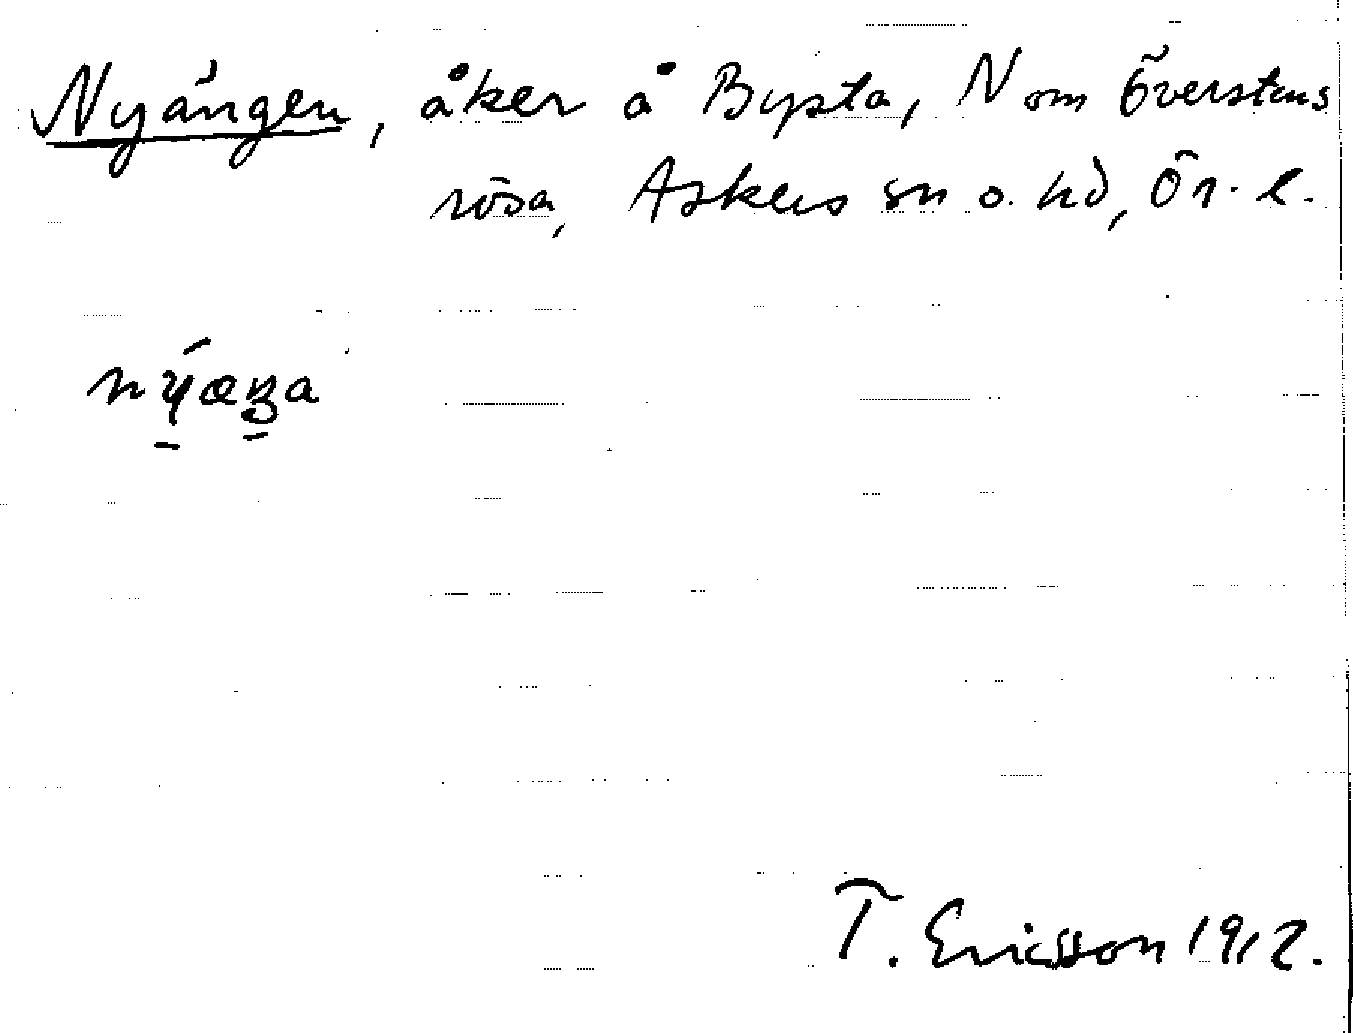 Nyängen, åker å Bysta, N om Överstens
rösa, Askers sn o. hd, Ör. l.
T. Ericsson 1912.